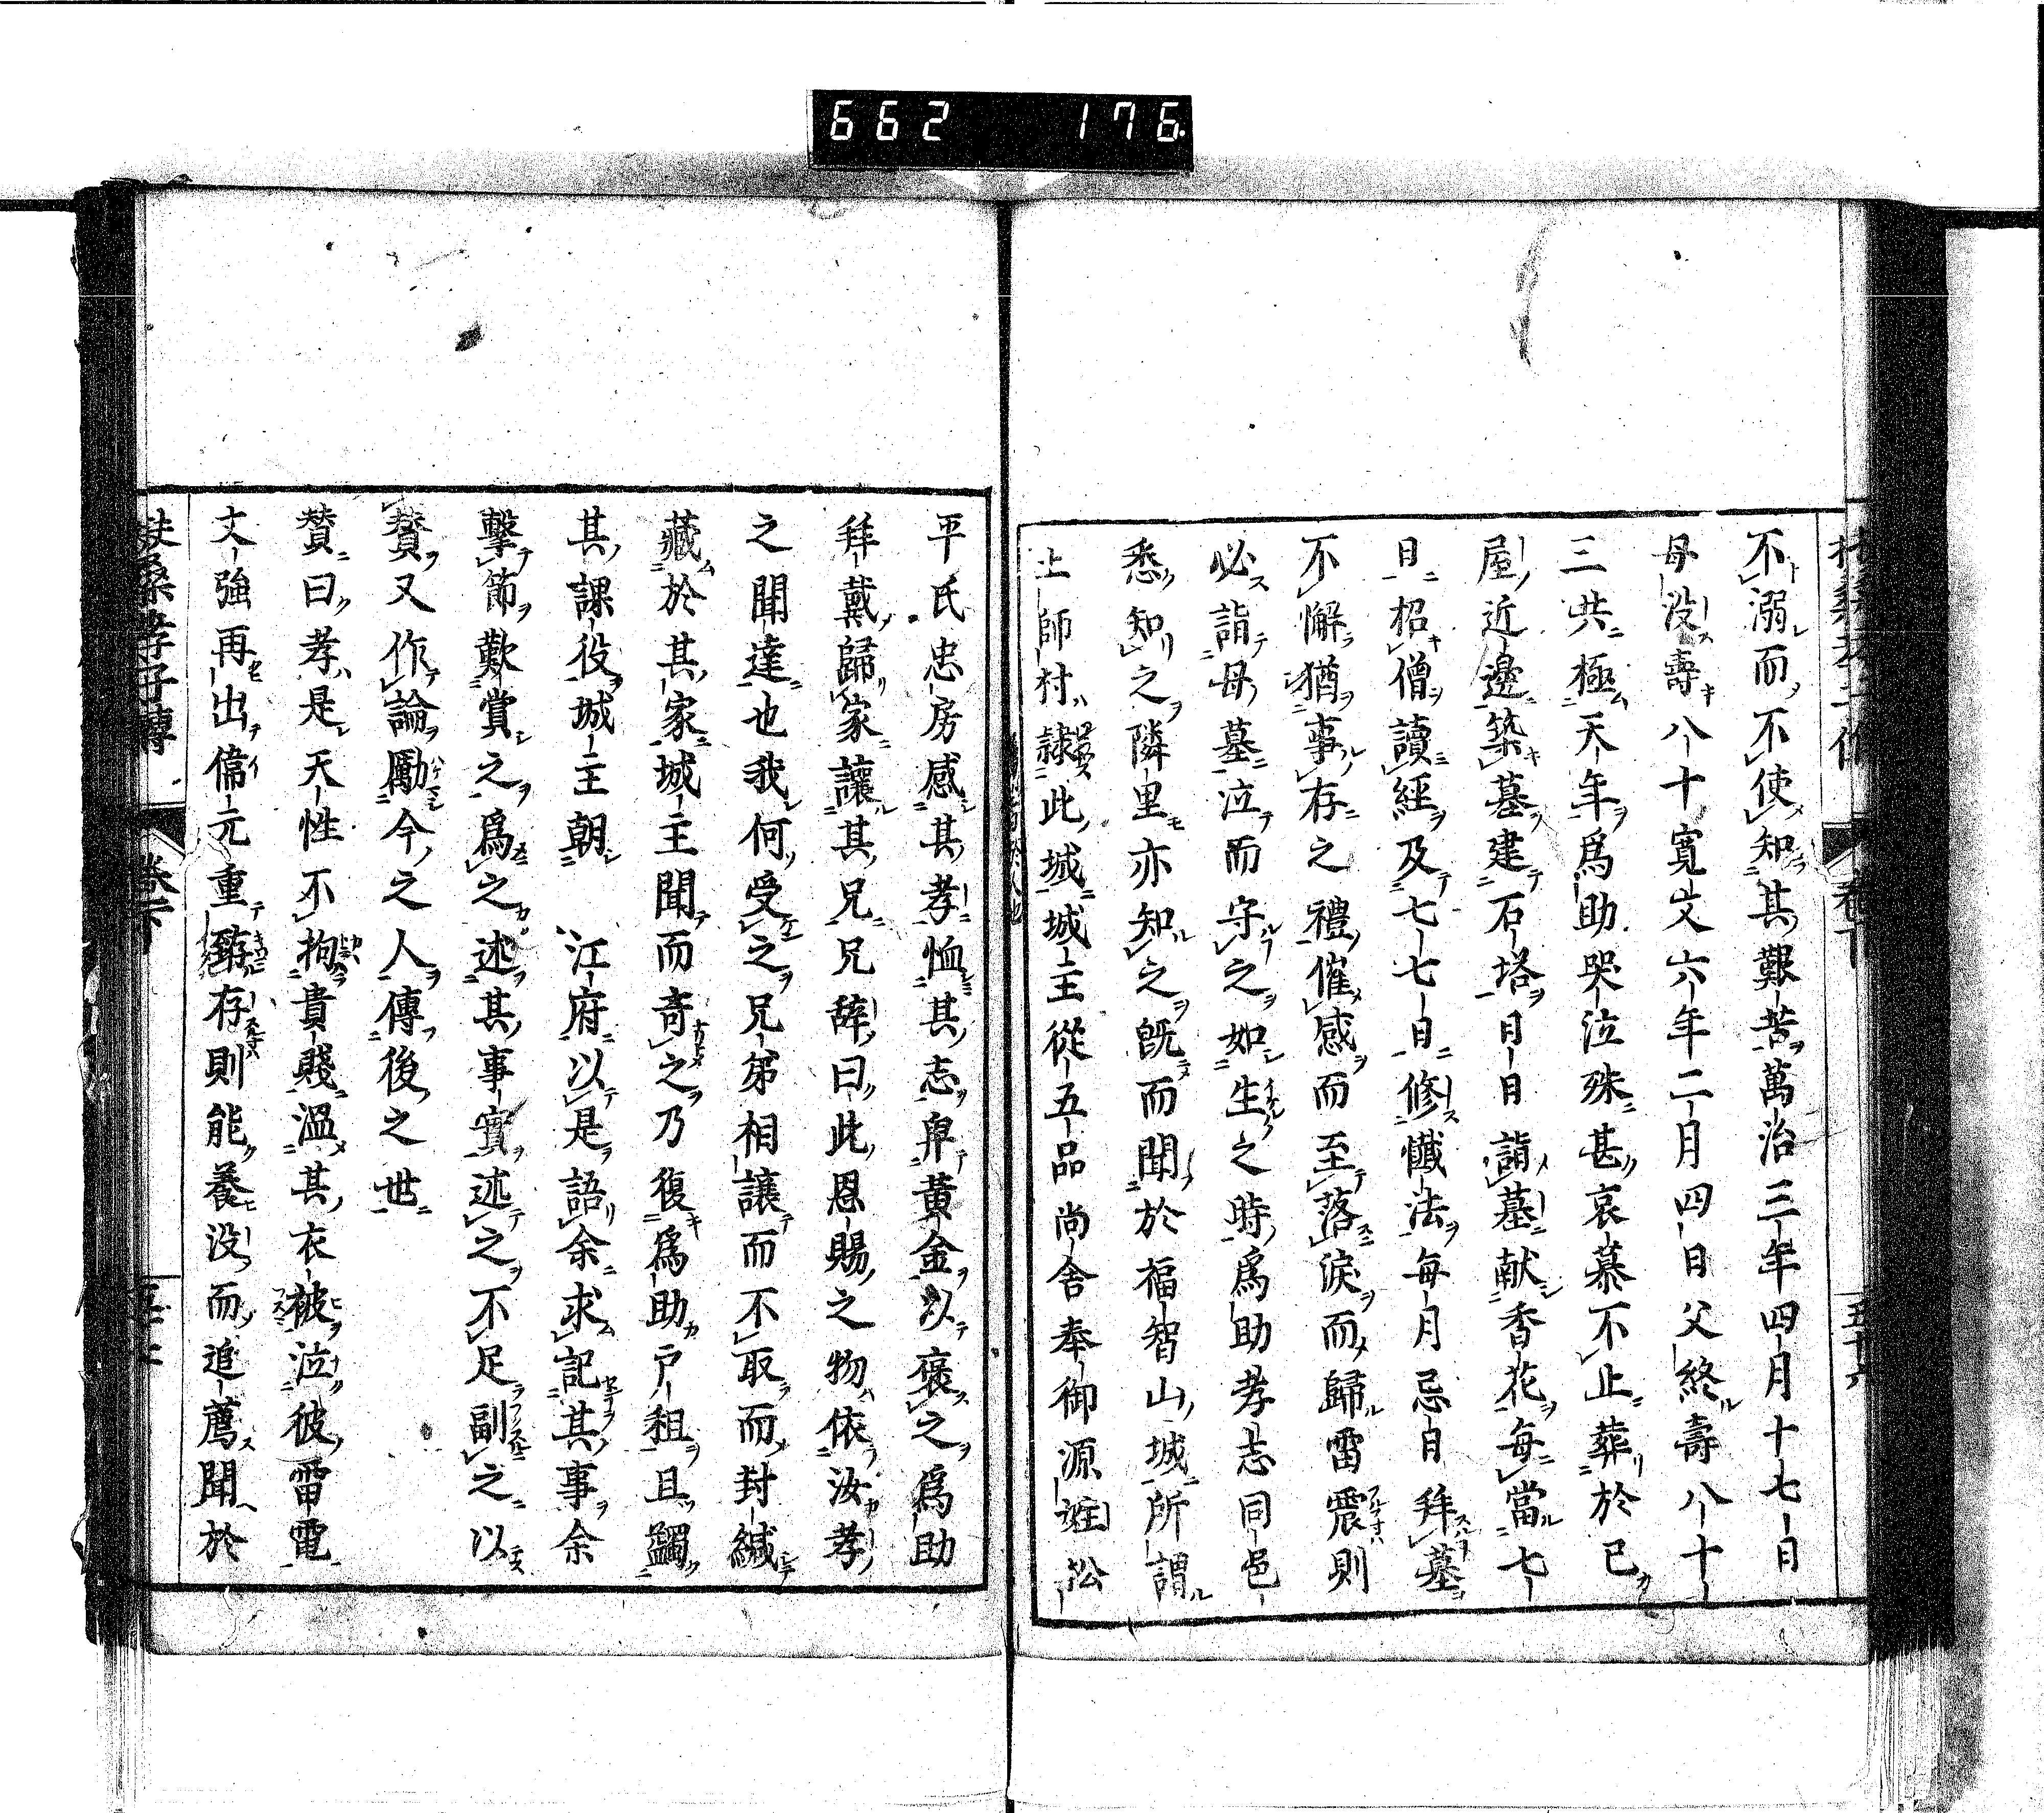 662 176
不溺而不使知其艱苦萬治三年四月十七日
母没壽八十寛文六年二月四日父終壽八十
三共極天年爲助哭泣殊甚哀慕不止葬於己
屋近邊築墓建石塔日日詣墓献香花毎當七
日招僧讀經及七七日修懺法毎月忌日拜墓
不懈猶事存之禮催感而至落涙而歸雷震則
必詣母墓泣而守之如生之時爲助孝志同邑
悉知之隣里亦知之既而聞於福智山城所謂
土師村隷此城城主從五品尚舍奉御源
平氏忠房感其孝恤其志畀黄金以褒之爲助
拜戴歸家讓其兄兄辞曰此恩賜之物依汝孝
之聞達也我何受之兄弟相讓而不取而封緘
藏於其家城主聞而奇之乃復爲助戸租且蠲
其課役城主朝 江府以是語余求記其事余
擊節歎賞之爲之述其事實述之不足副之以
賛又作論勵今之人傳後之世
賛曰孝是天性不拘貴賤溫其衣被泣彼雷電
丈強再出偉元重臻存則能養没而追薦聞於
扶桑孝子傳 卷下